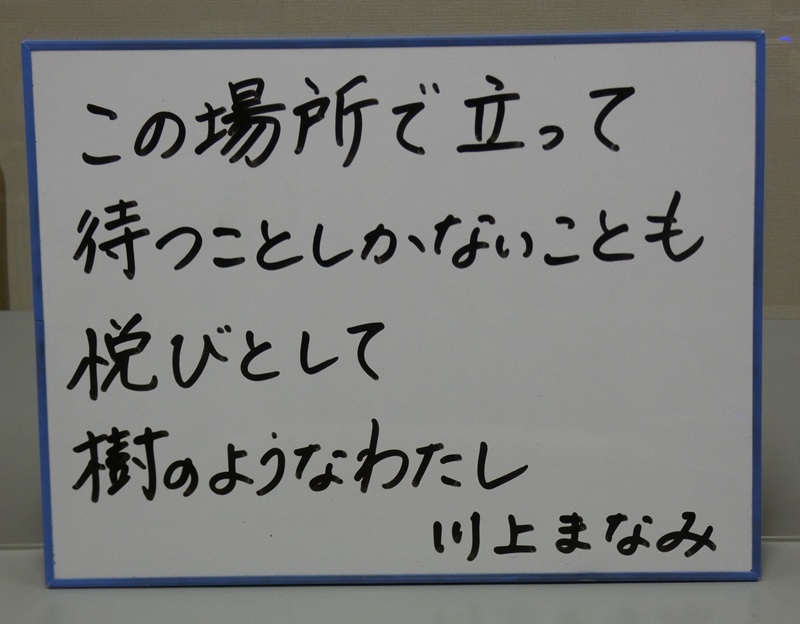 この場所で立って
待つことしかないことも
悦びとして
樹のようなわたし
川上まなみ